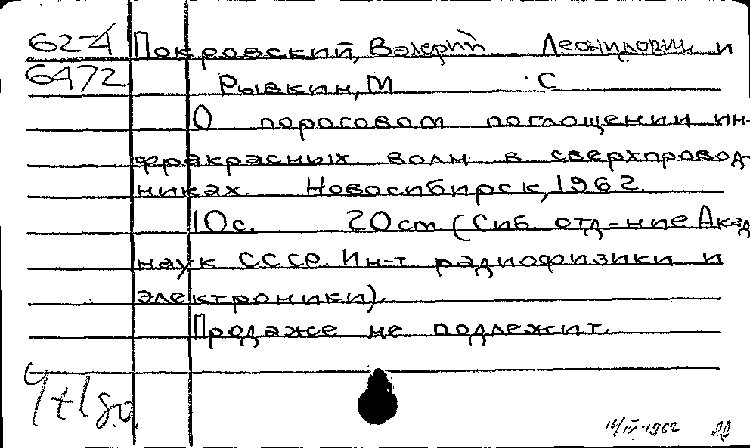 62-4 Покровский, Валерий Леонидович и
6472 Рывкин, М С
О пороговом поглощении ин-
фракрасных волн в сверхпровод-
никах Новосибирск, 1962
10с. 20см (Сиб. отд-ние Акад
наук СССР. Ин-т радиофизики и
электроники).
Продаже не подлежит.
14/IV-1962